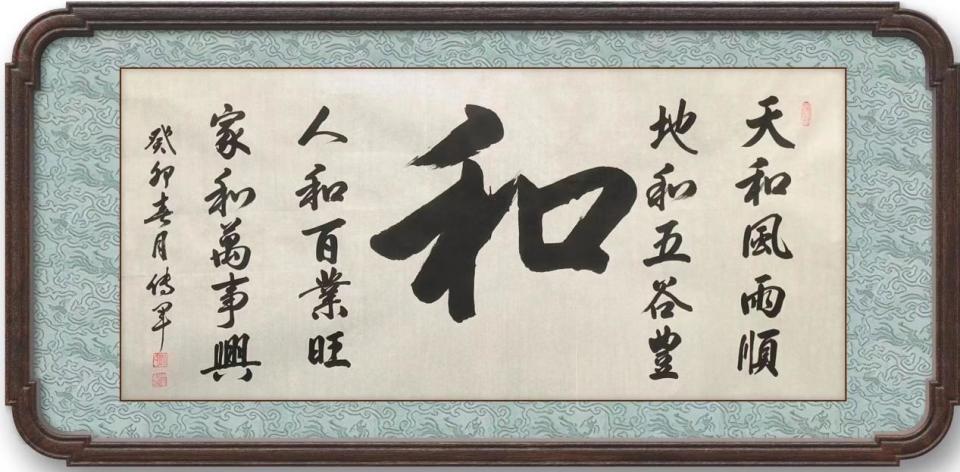 天和風雨順
地和五谷豐
和
人和百業旺
家和萬事興
癸卯春月傳軍